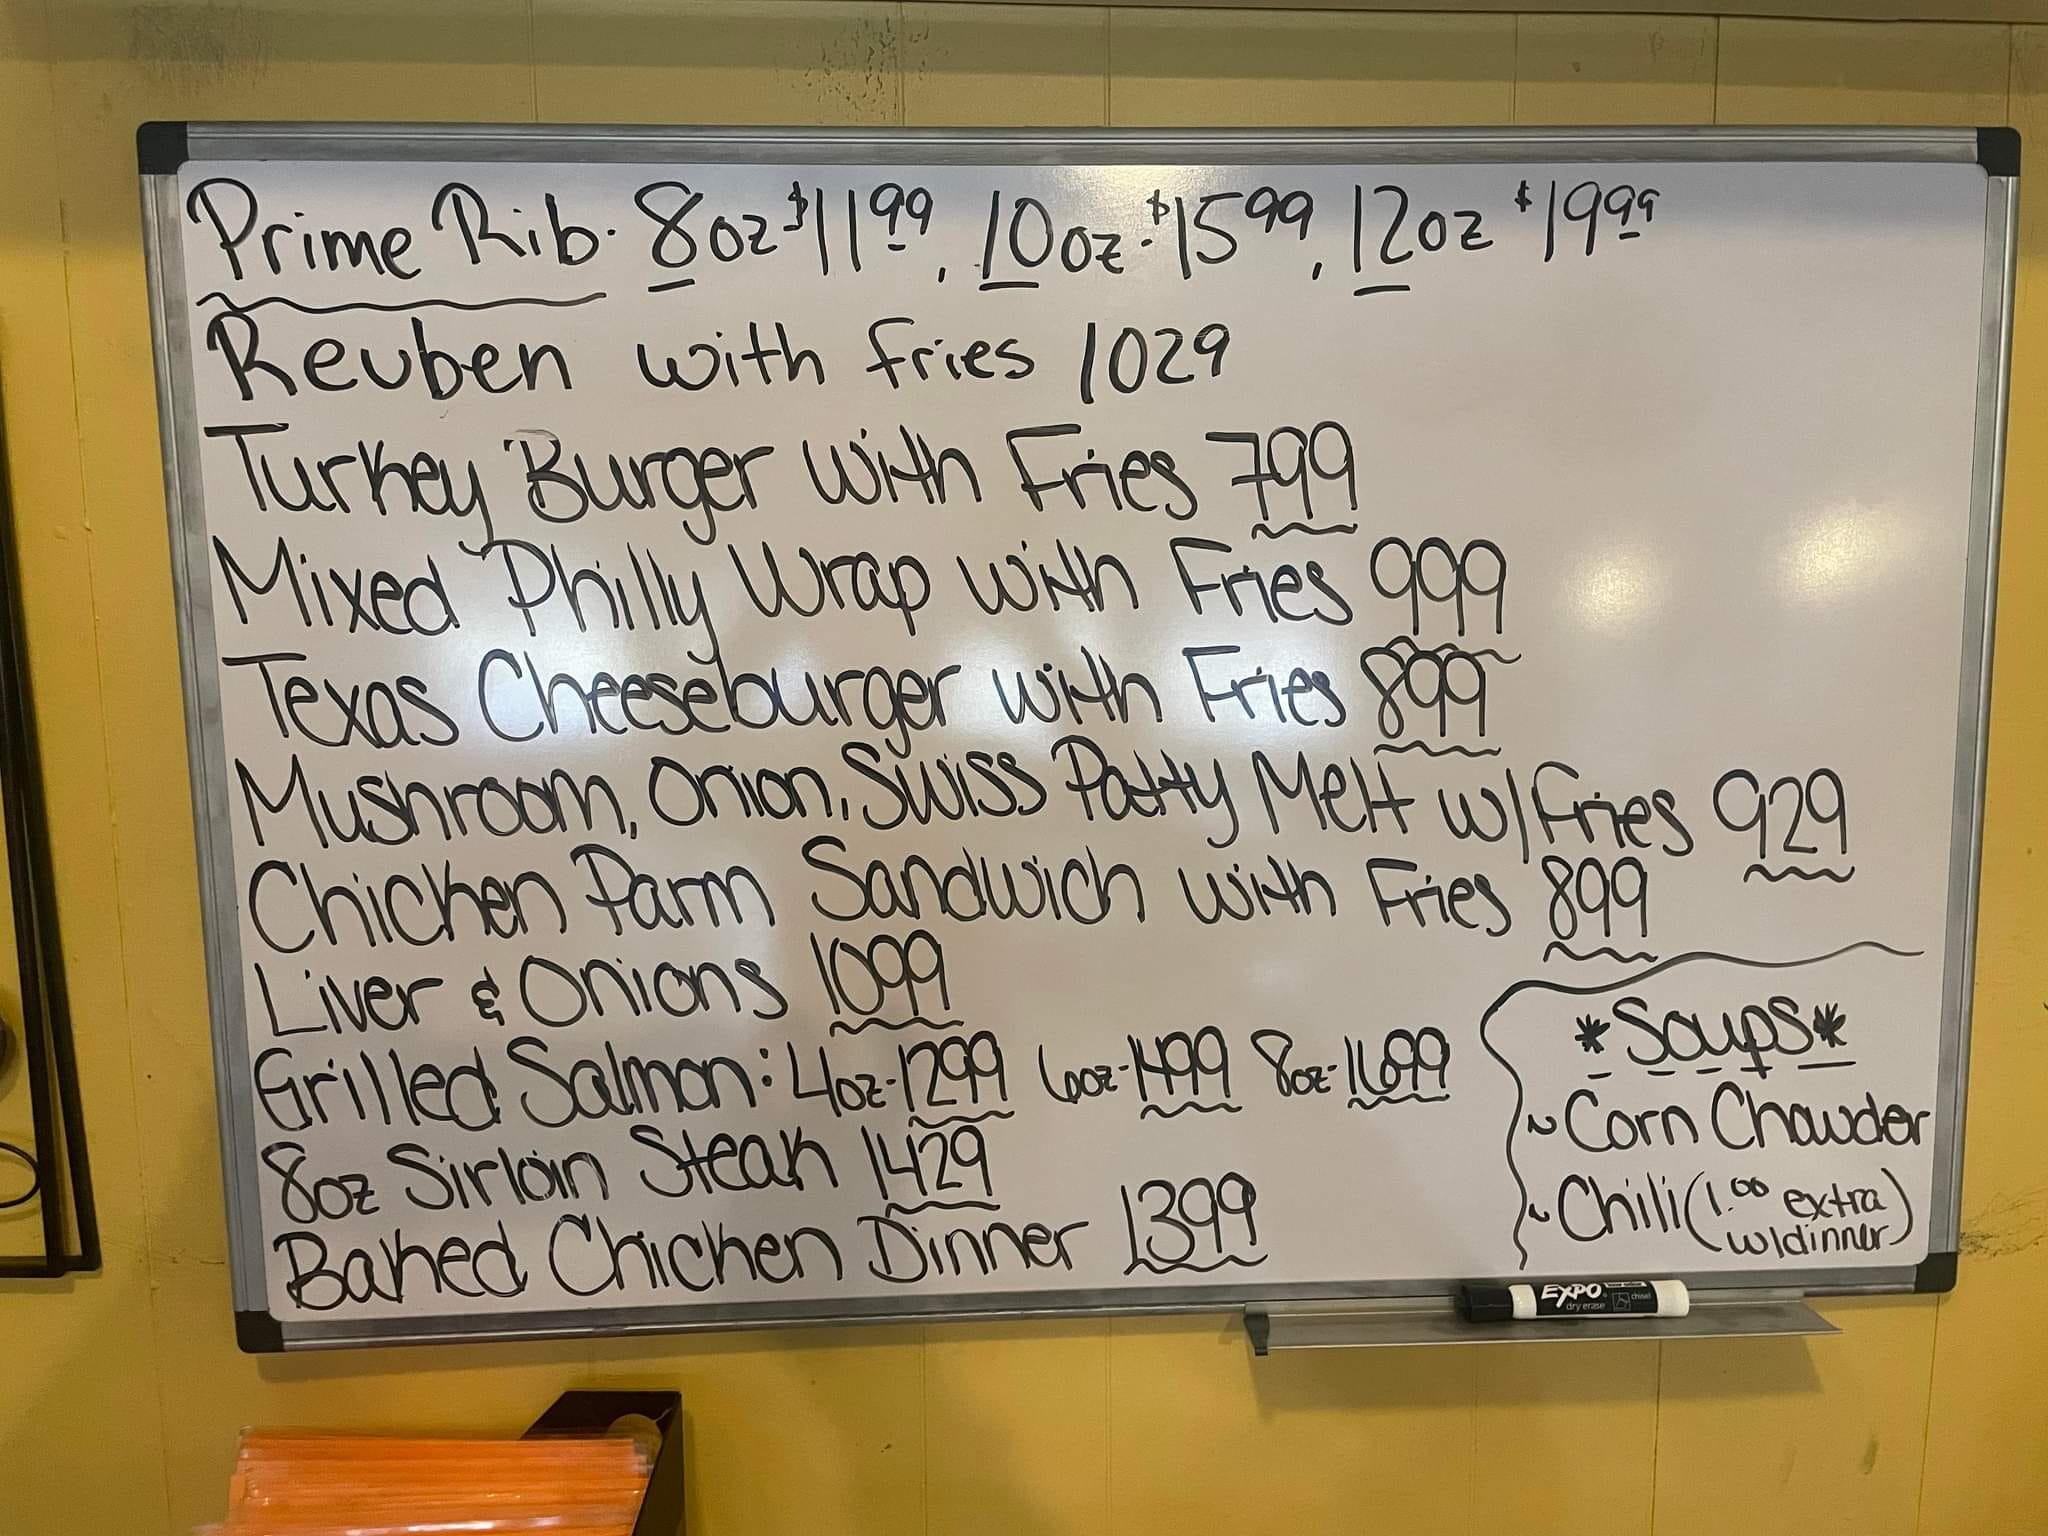 Prime Rib. 8oz $11.99, 10oz. $15.99, 12oz $19.99
Reuben with fries 1029
Turkey Burger with Fries 799
Mixed Philly Wrap with Fries 999
Texas Cheeseburger with Fries 899
Mushroom, Onion, Swiss Patty Melt w/Fries 929
Chicken Parm Sandwich with Fries 899
Liver & Onions 1099
Grilled Salmon: 4oz-1299 6oz-1499 8oz-1699
8oz Sirloin Steak 1429
Baked Chicken Dinner 1399
*Soups*
~Corn Chowder
~Chili (1.00 extra
w/dinner)
EXPO
dry erase
chisel